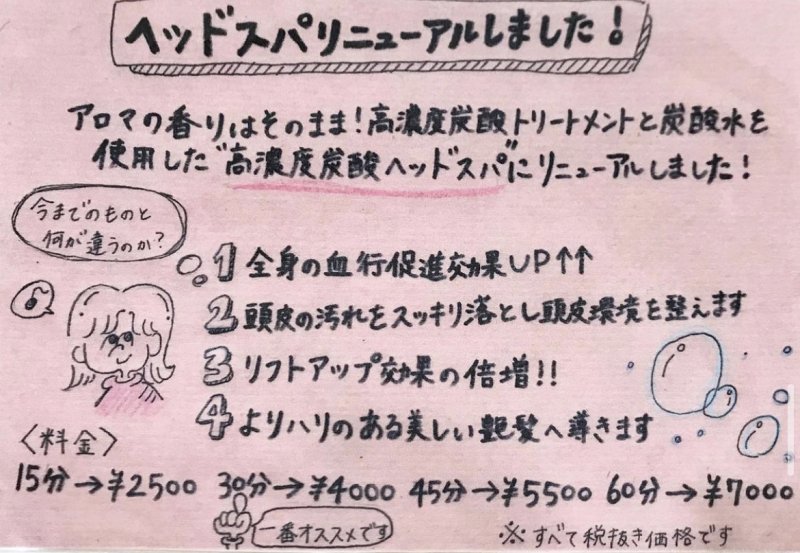 ヘッドスパリニューアルしました!
アロマの香りはそのまま!高濃度炭酸トリートメントと炭酸水を
使用した"高濃度炭酸ヘッドスパ"にリニューアルしました!
今までのものと
何が違うのか?
1 全身の血行促進効果UP↑↑
2 頭皮の汚れをスッキリ落とし頭皮環境を整えます
3 リフトアップ効果の倍増!!
4 よりハリのある美しい艶髪へ導きます
〈料金〉
15分→¥2500 30分→¥4000 45分→¥5500 60分→¥7000
一番オススメです
※すべて税抜き価格です